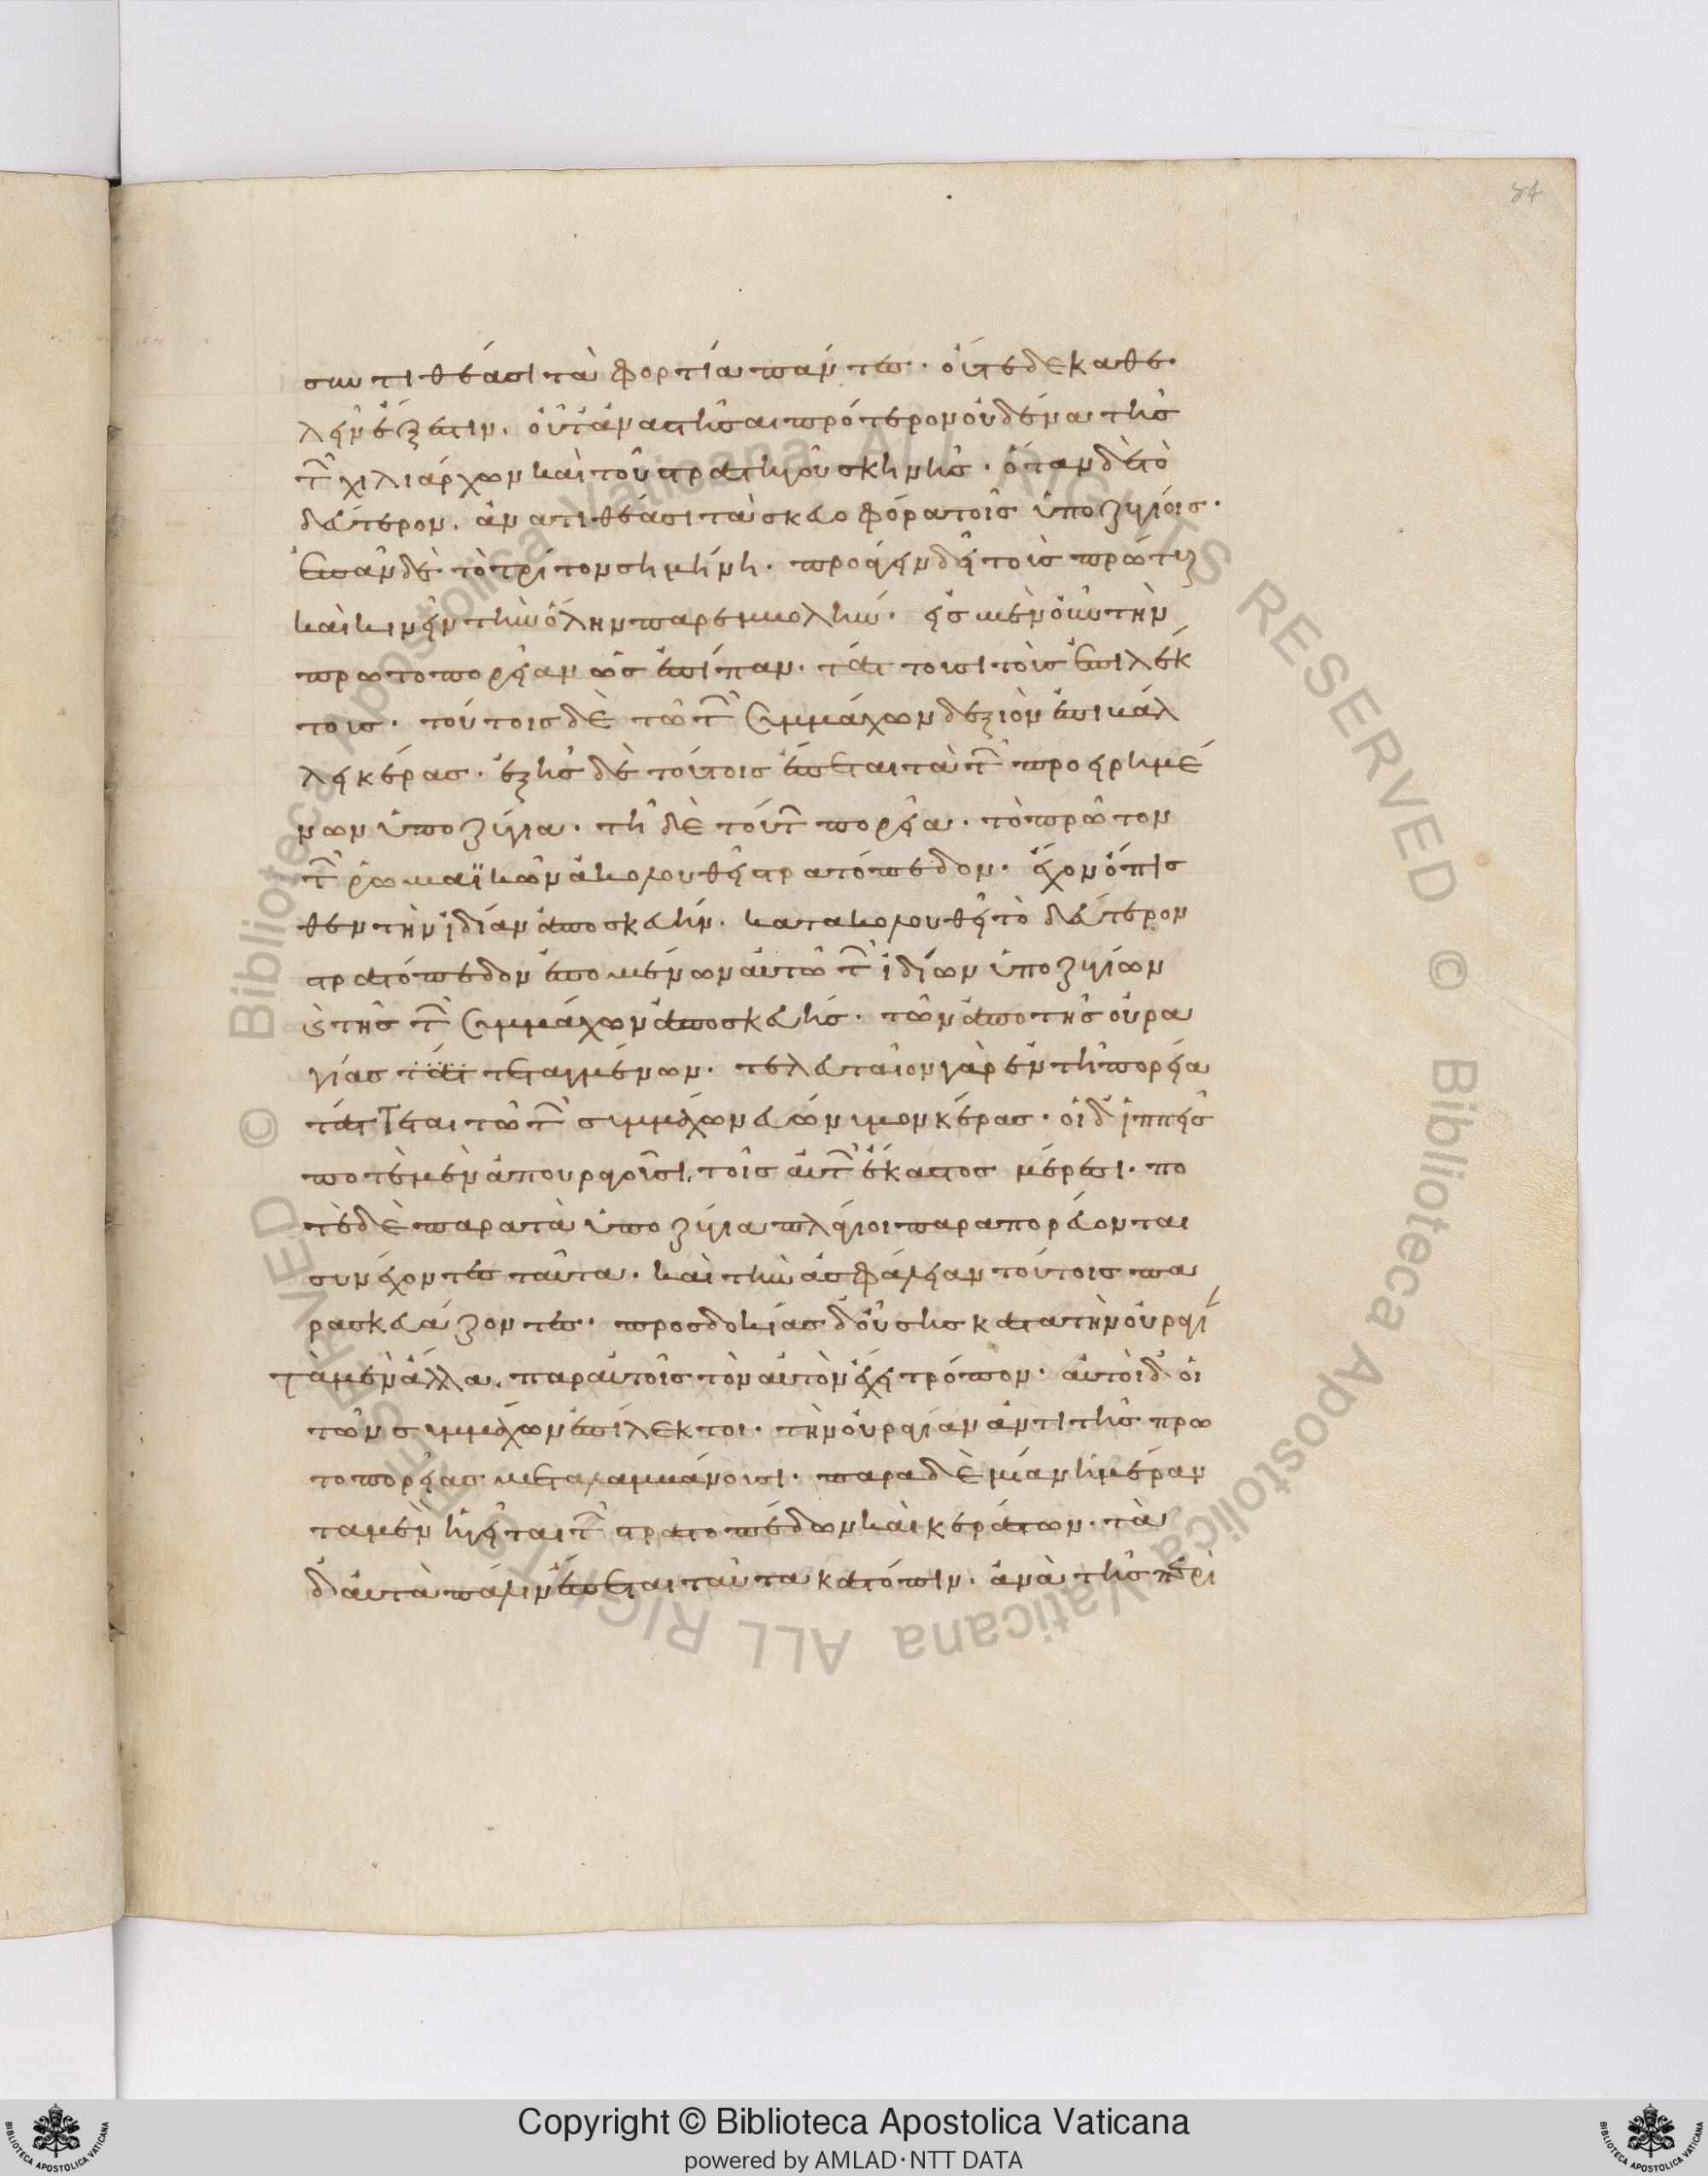 συντιθέασι τὰ φορτία πάντες· οὔτε δὲ καθε
λεῖν ἔξεστιν. οὔτ' ἀναστῆσαι πρότερον οὐδένα τῆς
τῶν χιλιάρχων καὶ τοῦ στρατηγοῦ σκηνῆς· ὅταν δὲ τὸ
δεύτερον. ἀνατιθέασι τὰ σκευοφόρα τοῖς ὑποζυγίοις·
ἐπὰν δὲ τὸ τρίτον σημήνη· προάγειν δεῖ τοὺς πρώτους
καὶ κινεῖν τὴν ὅλην παρεμβολήν· εἰς μὲν οὖν τὴν
πρωτοπορείαν ὡς ἐπίπαν. τάττουσι τοὺς ἐπιλέκ
τους· τούτοις δὲ τὸ τῶν συμμάχων δεξιὸν ἐπιβάλ
λει κέρας· ἑξῆς δὲ τούτοις ἕπεται τὰ τῶν προειρημέ
νων ὑποζύγια· τῆ δὲ τούτων πορεία· τὸ πρῶτον
τῶν ῥωμαϊκῶν ἀκολουθεῖ στρατόπεδον· ἔχον ὄπισ
θεν τὴν ἰδίαν ἀποσκευήν. κατακολουθεῖ τὸ δεύτερον
στρατόπεδον ἑπομένων αὐτῶ τῶν ἰδίων ὑποζυγίων
καὶ τῆς τῶν συμμάχων ἀποσκευῆς· τῶν ἀπὸ τῆς οὐρα
γίας τάτ τεταγμένων· τελευταῖον γὰρ ἐν τῆ πορεία
τάττεται τὸ τῶν συμμάχων εὐώνυμον κέρας· οἱ δ' ἱππεῖς
ποτὲ μὲν ἀπουραγοῦσι. τοῖς αὐτῶν ἕκαστος μέρεσι· πο
τὲ δὲ παρὰ τὰ ὑποζύγια πλάγιοι παραπορεύονται
συνέχοντες ταῦτα· καὶ τὴν ἀσφάλειαν τούτοις πα
ρασκευάζοντες· προσδοκίας δ' οὔσης κατὰ τὴν οὐραγί
τὰ μὲν ἄλλα. παρ' αὐτοῖς τὸν αὐτὸν ἔχει τρόπον· αὐτοὶ δ' οἱ
τῶν συμμάχων ἐπίλεκτοι· τὴν οὐραγίαν ἀντὶ τῆς πρω
τοπορείας μεταλαμβάνουσι· παρὰ δὲ μίαν ἡμέραν
τὰ μὲν ἡγεῖται τῶν στρατοπέδων καὶ κεράτων· τὰ
δ' αὐτὰ πάλιν ἕπεται ταῦτα κατόπιν. ἅμα τῆς περὶ
84
Copyright © Biblioteca Apostolica Vaticana
powered by AMLAD·NTT DATA